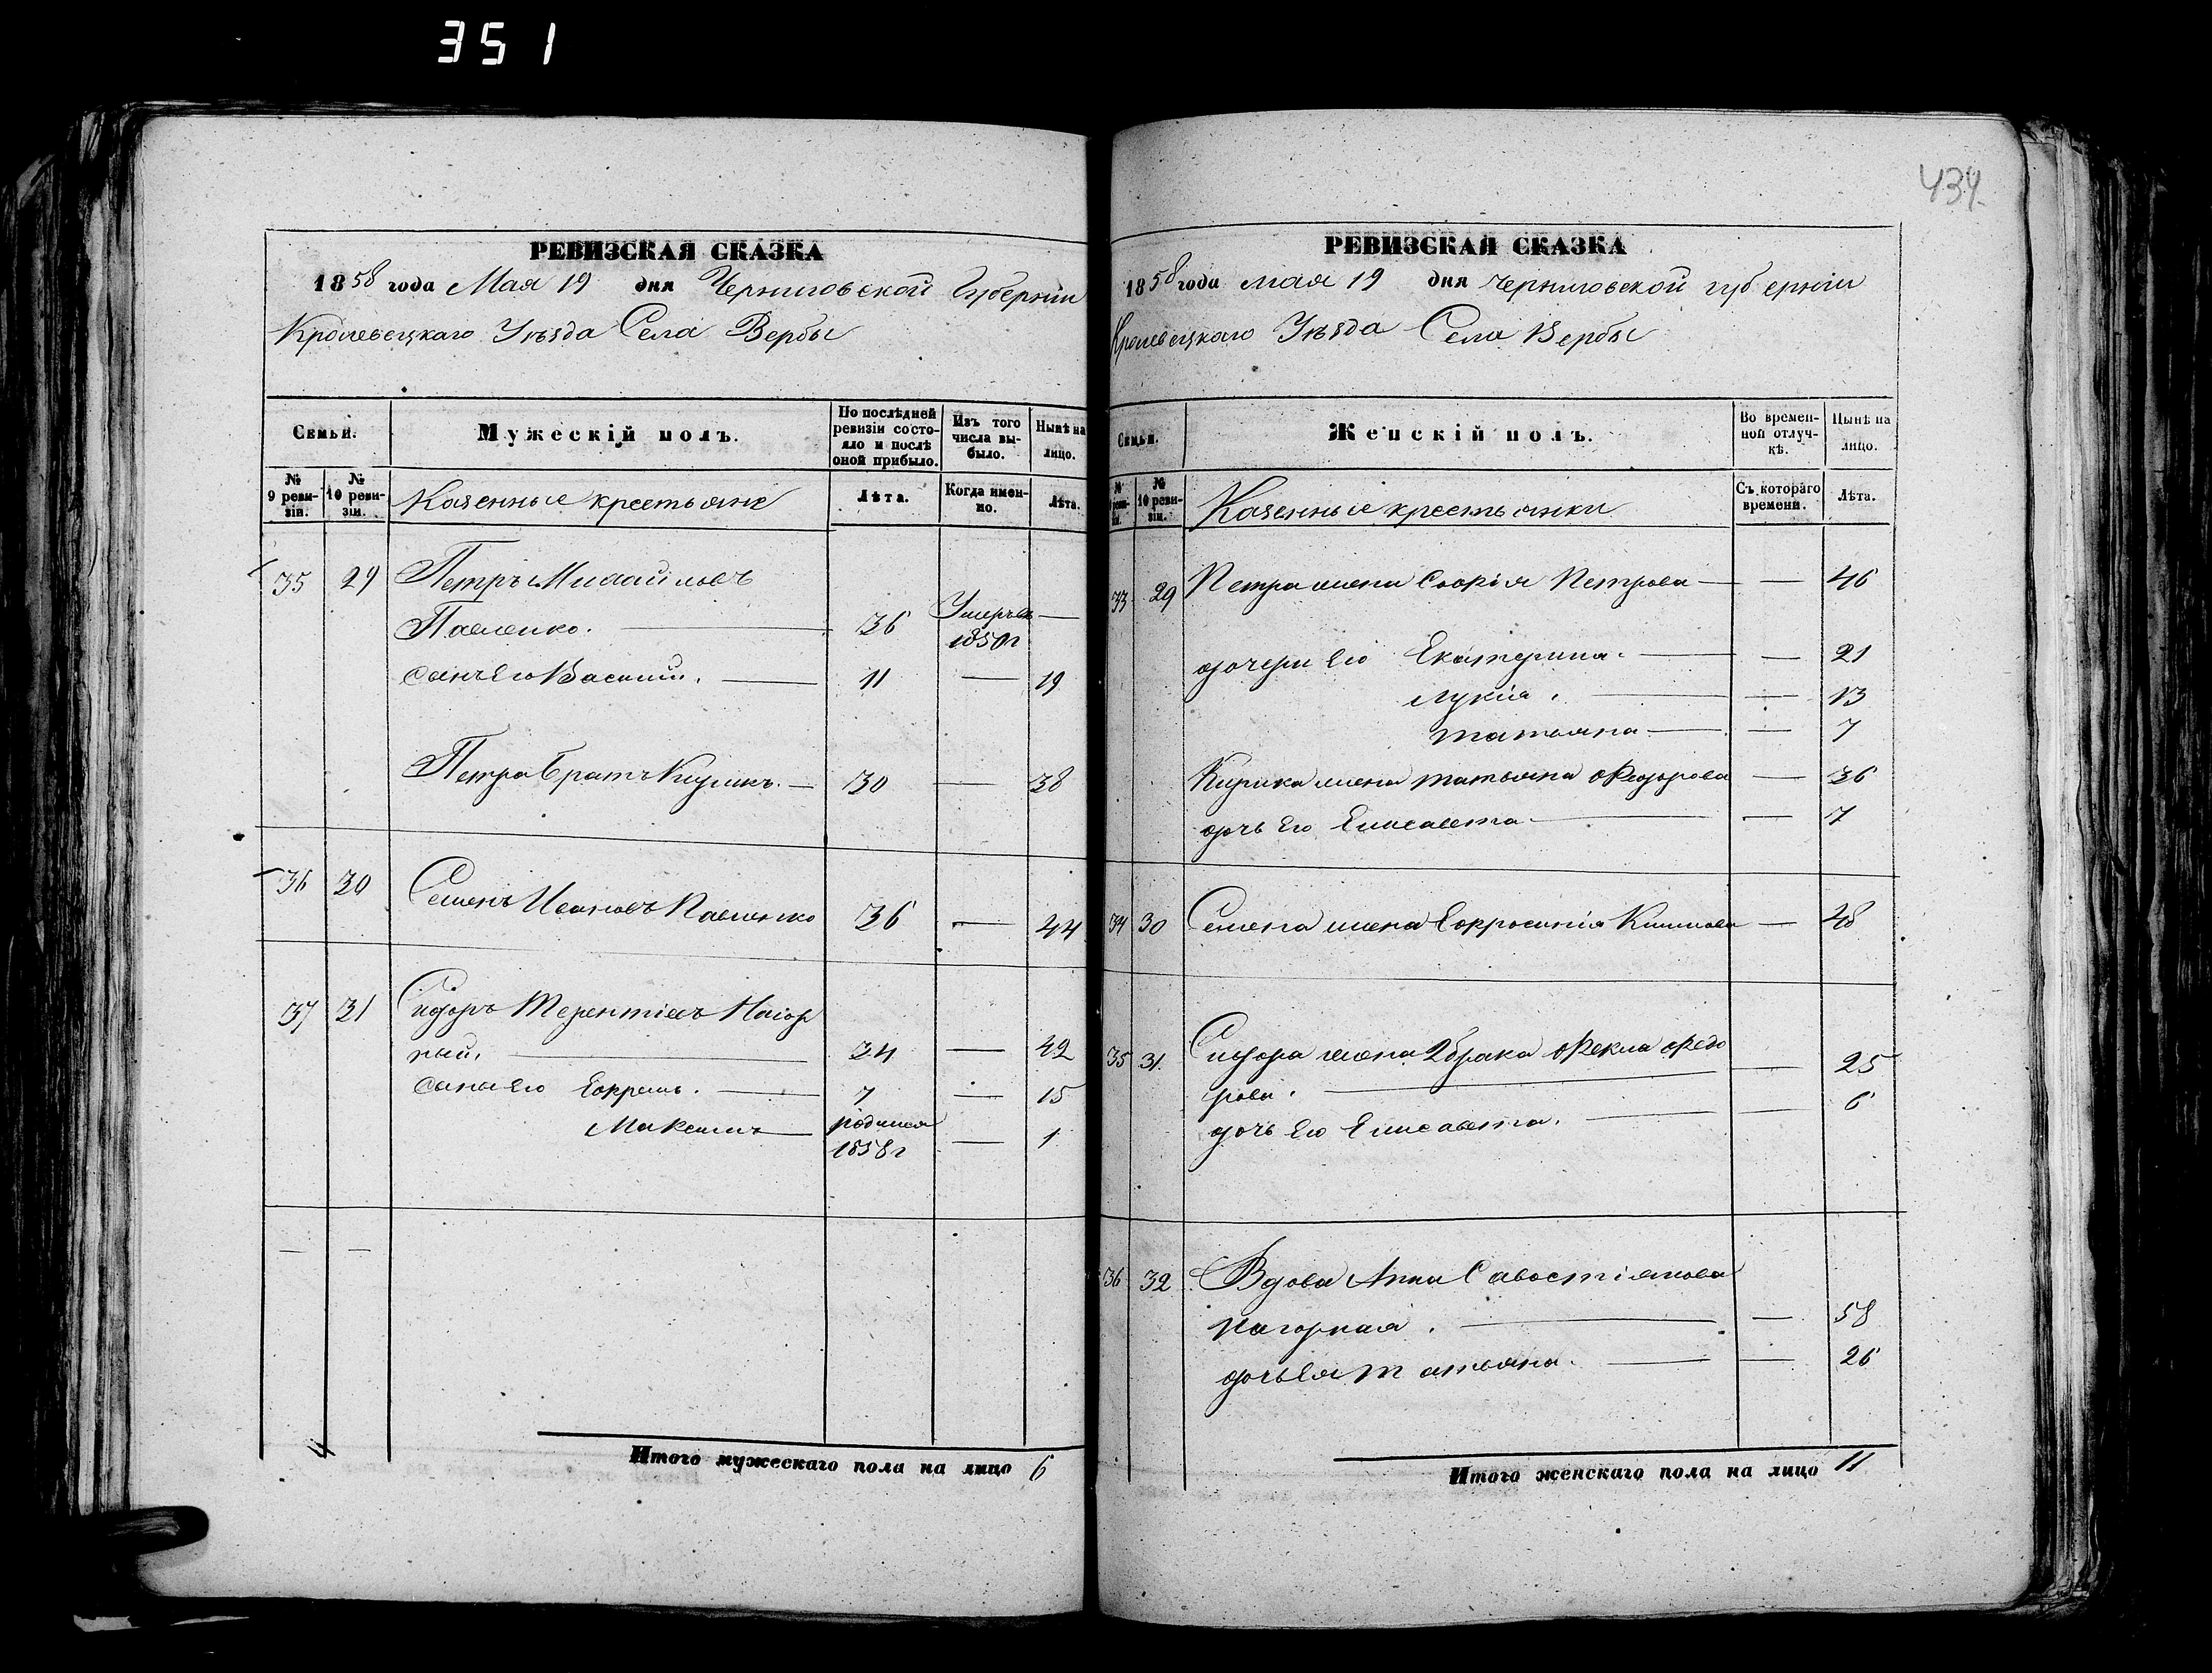 351
434
РЕВИЗСКАЯ СКАЗКА
1858 года Мая 19 дня Черниговской Губерніи
Кролевецкаго Уѣзда Села Вербы
Семьи.
Мужескій полъ.
По послѣдней ревизіи состояло и послѣ оной прибыло.
Изъ того числа выбыло.
Нынѣ на лицо.
№ 9 ревизіи.
№ 10 ревизіи.
Казенные крестьяне
Лѣта.
Когда именно.
Лѣта.
35 29 Петръ Михайловъ
Павленко. — 36 Умеръ въ 1850 г —
сынъ Его Василий. — 11 — 19
Петра братъ Кирикъ. — 30 — 38
36 30 Семенъ Ивановъ Павленко 36 — 44
37 31 Сидоръ Терентіевъ Нагор
ный. — 34 — 42
сыны Его Ефремъ. — 7 — 15
Максимъ — родился 1858 г — 1
— —
Итого мужескаго пола на лицо 6
РЕВИЗСКАЯ СКАЗКА
1858 года мая 19 дня Черниговской губерніи
Кролевецкаго Уѣзда Села Вербы
Семьи.
Женскій полъ.
Во временной отлучкѣ.
Нынѣ на лицо.
№ ревизіи.
№ 10 ревизіи.
Казенные крестьянки
Съ котораго времени.
Лѣта.
33 29 Петра жена Софія Петрова — — 46
дочери Его Екатерина. — — 21
Лукія. — — 13
Татьяна — — 7
Кирика жена Татьяна Феодорова — 36
дочь Его Елисавета — — 7
34 30 Семена жена Ефросинія Климова — 48
35 31. Сидора жена 2 брака Фекла Федо
рова. — — 25
дочь Его Елисавета. — — 6
36 32 Вдова Анна Савостіянова
Нагорная. — — 58
дочь Ея Татьяна. — — 26
Итого женскаго пола на лицо 11